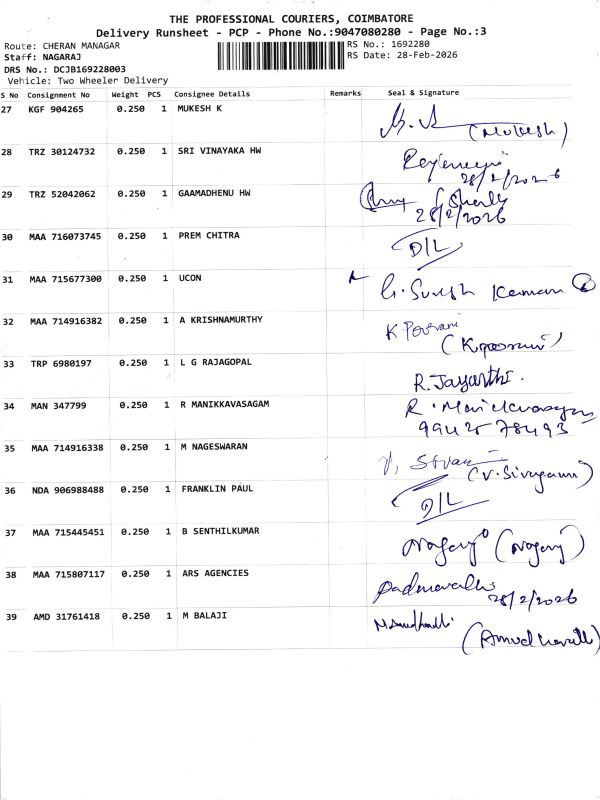 THE PROFESSIONAL COURIERS, COIMBATORE
Delivery Runsheet - PCP - Phone No.:9047080280 - Page No.:3
Route: CHERAN MANAGAR RS No.: 1692280
Staff: NAGARAJ RS Date: 28-Feb-2026
DRS No.: DCJB169228003
Vehicle: Two Wheeler Delivery
S No Consignment No Weight PCS Consignee Details Remarks Seal & Signature
27 KGF 904265 0.250 1 MUKESH K (Mukesh)
28 TRZ 30124732 0.250 1 SRI VINAYAKA HW
28/2/2026
29 TRZ 52042062 0.250 1 GAAMADHENU HW
28/2/2026
30 MAA 716073745 0.250 1 PREM CHITRA D/L
31 MAA 715677300 0.250 1 UCON G. Suresh Kumar
32 MAA 714916382 0.250 1 A KRISHNAMURTHY K
33 TRP 6980197 0.250 1 L G RAJAGOPAL R. Jayanthi.
34 MAN 347799 0.250 1 R MANIKKAVASAGAM R. Manickavasagam
99425 78493
35 MAA 714916338 0.250 1 M NAGESWARAN V.
36 NDA 906988488 0.250 1 FRANKLIN PAUL D/L
37 MAA 715445451 0.250 1 B SENTHILKUMAR
38 MAA 715807117 0.250 1 ARS AGENCIES Padmavathi
28/2/2026
39 AMD 31761418 0.250 1 M BALAJI